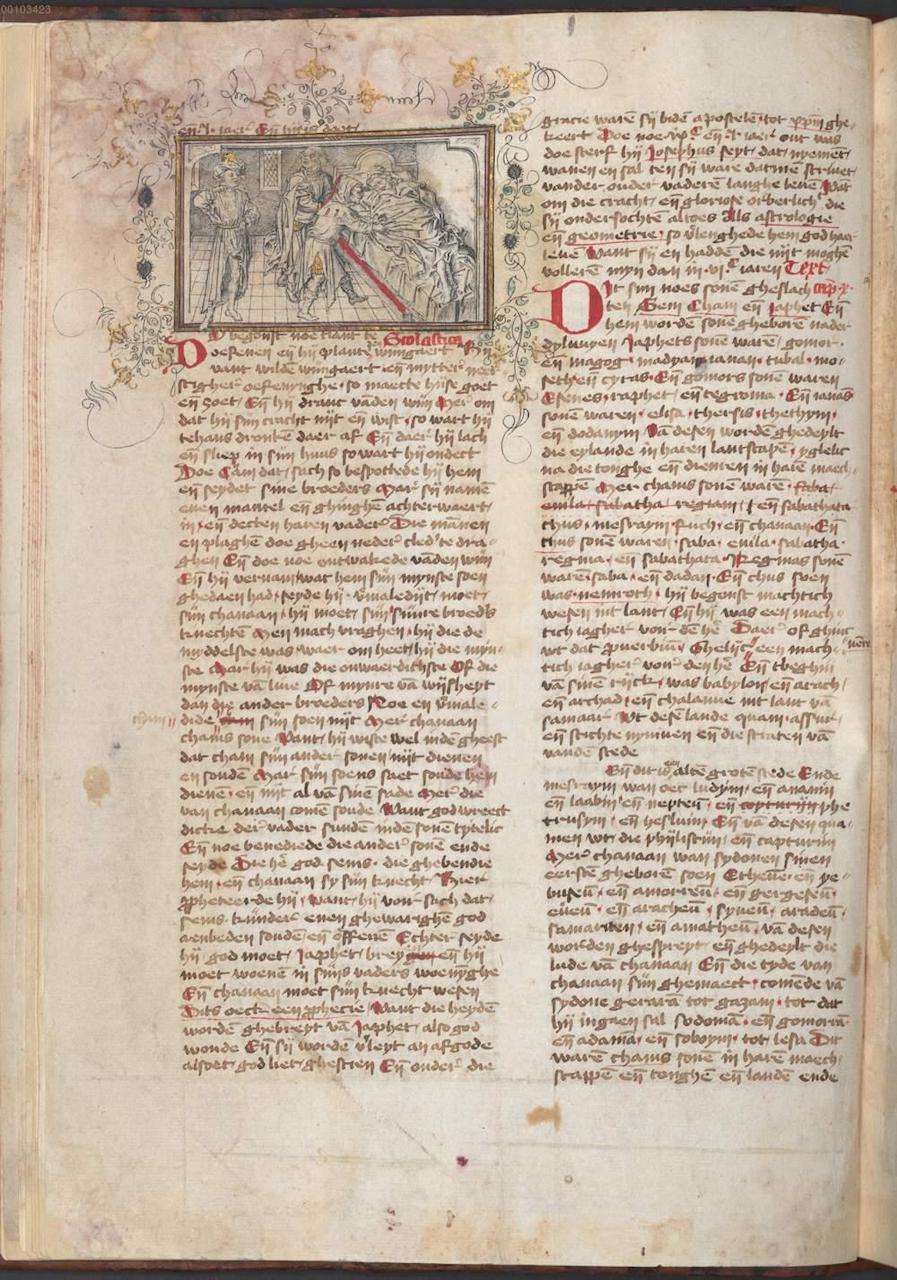 00103423
eñ .l. iaer Eñ hij is doet
Scolastica
Doe begonst noe tlant te
oefenen eñ hij plante wijngaert Hij
vant wilde wijngaert eñ mytter men
stigher oefenynghe so maecte hijse goet
eñ zoet Eñ hij dranc vādēn wijn Mer om
dat hij sijn cracht nijt eñ wist so wart hij
tehans dronkē daer af Eñ daer hij lach
eñ sliep in sijn huus so wart hij ondect
Doe Cam dat sach so bespottede hij hem
eñ seydet sine broeders Mar sij namē
enen mantel eñ ghinghē achterwaert
in eñ decten haren vader Die mānen
en plaghē doe gheen neder cledt te dra
ghen Eñ doe noe ontwakede vādēn wijn
Eñ hij vernam wat hem sijn mynste soen
ghedaen had seyde hij vmaledijt moet
sijn chanaan hij moet sijnre broeders
knecht Men mach vraghen hij die de
myddelste was waer om heet hij die myn
ste Mar hij was die onwaerdichste Of die
mynste vā live Of mynre vā wijsheyt
dan die ander broeders Noe en vmale
dide cham sijn soen nijt Mer chanaan
chams sone Want hij wiste wel indē gheest
dat cham sijn ander sonen nijt dienen
en soudē Mar sijn soens saet soude hem
dienē eñ nijt al vā sinē sade Mer die
van chanaan comē soude Want god wreect
dicke der vader sundē indē sonē tytelic
Eñ noe benediede die ander sonē ende
seyde Die hē god sems die ghebendie
hem eñ chanaan sy sijn knecht Hier
ppheteerde hij Want hij voir sach dat
sems kinder enen ghewarighē god
aenbeden soudē eñ offerē Echter seyde
hij god moet Japhet breyden eñ hij
moet woenē in sems vaders woenynghe
Eñ chanaan moet sijn knecht wesen
Dits oeck een pphecie Want die heydē
wordē ghebreyt vā Japhet also god
wonde Eñ sij wordē vleyt an afgode
alsoet god liet ghescien Eñ onder die
cham
gracie warē sij bidē apostelē tot xpm ghe
keert Doe noe vjc eñ l iaer out was
doe sterf hij Josephus seyt dat nyemēt
wanen en sal ten sij ware datmē scrivet
vander ouder vaderē langhe levē Wāt
om die cracht eñ gloriose orberlichē die
sij ondersochtē altoes Als astrologie
eñ geometrie so vlenghede hem god haer
leve Want sij en haddē die nijt moghē
vollerē myn dan in vj c iaren Text
Dit sijn noes sonē gheslach cap x
ten Sem Cham eñ Japhet Eñ
hem wordē sonē gheborē nader
dyluuyen Japhets sonē warē gomor
eñ magog madyan ianan tubal mo
seth eñ cyras Eñ gomors sonē waren
Esenes raphet eñ tegroma Eñ ianas
sonē waren elisa thersis thethym
eñ dodanym Vā desen wordē ghedeylt
die eylande in haren lantscapē yghelic
na die tonghe eñ diemen in harē maech
scappē Mer chams sonē warē saba
euila sabatha regiam eñ sabathata
chus mesraym fuch eñ chanaan Eñ
chus sonē waren saba euila sabatha
regma eñ sabathata Regmas sonē
warē saba eñ dadan Eñ chus soen
was nemroth hij begonst machtich
wesen int lant Eñ hij was een mach
tich iagher voir dē hē Daer of ghinc
wt dat puerbiū Ghelijc een mach
tich iagher voir den hē Eñ tbeghin
vā sinē rijck was babylon eñ arach
eñ archad eñ chalanne int lant vā
sannaar Wt desē lande quam assur
eñ stichte nyniuen eñ die straten vā
vandē stede
Eñ dit is een altē grotē stede Ende
mesraym wan oec ludym eñ anamin
eñ laabin eñ neptun eñ coptunijn phe
trusym eñ hesluim Eñ vā desen qua
men wt die phijlistijn eñ capturim
Mer chanaan wan sydonen sinen
eerstē gheborē soen Etheuē eñ ye
buseū eñ amorreū eñ gergeseū
eueū eñ aracheū syneū aradeū
samariten eñ amatheū vā desen
worden ghespreyt eñ ghedeylt die
lude vā chanaan Eñ die tyde van
chanaan sijn ghemaect comēde vā
sydone gerara tot gazam tot dat
hij ingaen sal sodomā eñ gomorrā
eñ adama eñ soboym tot lesa Dit
warē chams sonē in harē maech
scappē eñ tonghē eñ landē ende